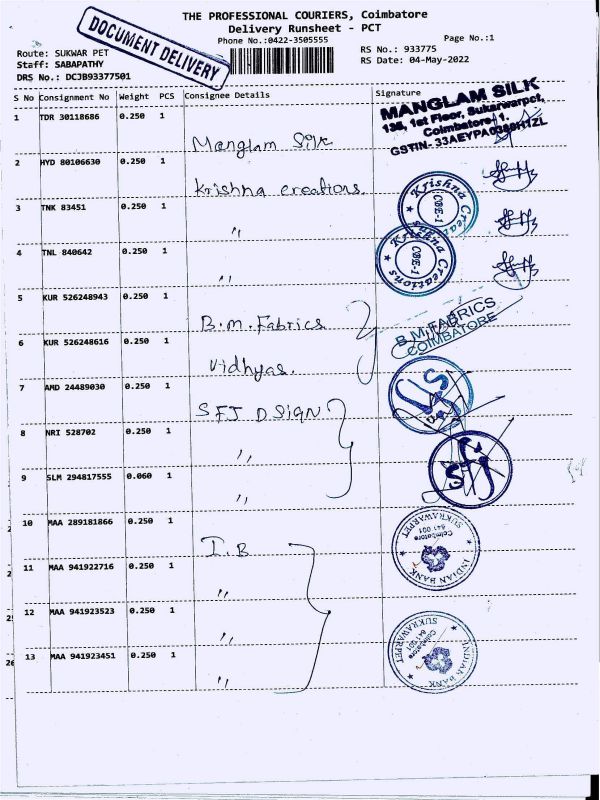 THE PROFESSIONAL COURIERS, Coimbatore
Delivery Runsheet - PCT
DOCUMENT DELIVERY
Phone No.:0422-3505555
Page No.:1
Route: SUKWAR PET
RS No.: 933775
Staff: SABAPATHY
RS Date: 04-May-2022
DRS No.: DCJB93377501
S No Consignment No Weight PCS Consignee Details Signature
1 TDR 30118686 0.250 1
Manglam Silk
MANGLAM SILK
136, 1st Floor, Sukarwarpet,
Coimbatore - 1.
2 HYD 80106630 0.250 1
Krishna creations.
3 TNK 83451 0.250 1
"
Krishna Creations
CBE-1
4 TNL 840642 0.250 1
"
Krishna Creations
CBE-1
5 KUR 526248943 0.250 1
B.M. Fabrics
B.M. FABRICS
COIMBATORE
6 KUR 526248616 0.250 1
Vidhyas.
7 AMD 24489030 0.250 1
SFJ DSIGN
8 NRI 528702 0.250 1
"
sfj
9 SLM 294817555 0.060 1
"
10 MAA 289181866 0.250 1
I.B
INDIAN BANK
SUKRAWARPET
Coimbatore
641 001
11 MAA 941922716 0.250 1
"
12 MAA 941923523 0.250 1
"
INDIAN BANK
SUKRAWARPET
Coimbatore
641 001
13 MAA 941923451 0.250 1
"